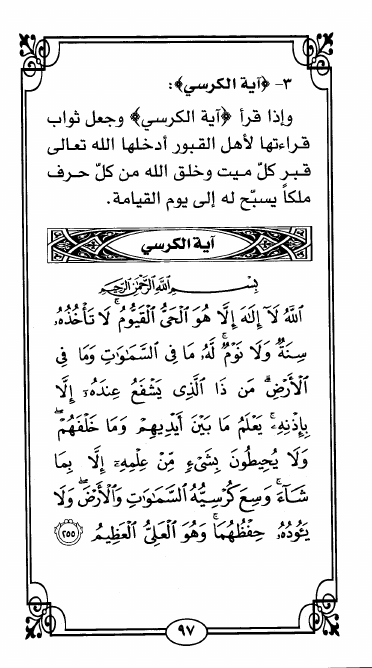 ٣- ﴿آية الكرسي﴾:
وإذا قرأ ﴿آية الكرسي﴾ وجعل ثواب
قراءتها لأهل القبور أدخلها الله تعالى
قبر كلّ ميت وخلق الله من كلّ حرف
ملكاً يسبّح له إلى يوم القيامة.
آية الكرسي
بِسْمِ ٱللَّهِ ٱلرَّحْمَٰنِ ٱلرَّحِيمِ
ٱللَّهُ لَآ إِلَٰهَ إِلَّا هُوَ ٱلْحَىُّ ٱلْقَيُّومُ ۚ لَا تَأْخُذُهُۥ
سِنَةٌ وَلَا نَوْمٌ ۚ لَّهُۥ مَا فِى ٱلسَّمَٰوَٰتِ وَمَا فِى
ٱلْأَرْضِ ۗ مَن ذَا ٱلَّذِى يَشْفَعُ عِندَهُۥٓ إِلَّا
بِإِذْنِهِۦ ۚ يَعْلَمُ مَا بَيْنَ أَيْدِيهِمْ وَمَا خَلْفَهُمْ ۖ
وَلَا يُحِيطُونَ بِشَىْءٍ مِّنْ عِلْمِهِۦٓ إِلَّا بِمَا
شَآءَ ۚ وَسِعَ كُرْسِيُّهُ ٱلسَّمَٰوَٰتِ وَٱلْأَرْضَ ۖ وَلَا
يَـُٔودُهُۥ حِفْظُهُمَا ۚ وَهُوَ ٱلْعَلِىُّ ٱلْعَظِيمُ ﴿٢٥٥﴾
٩٧